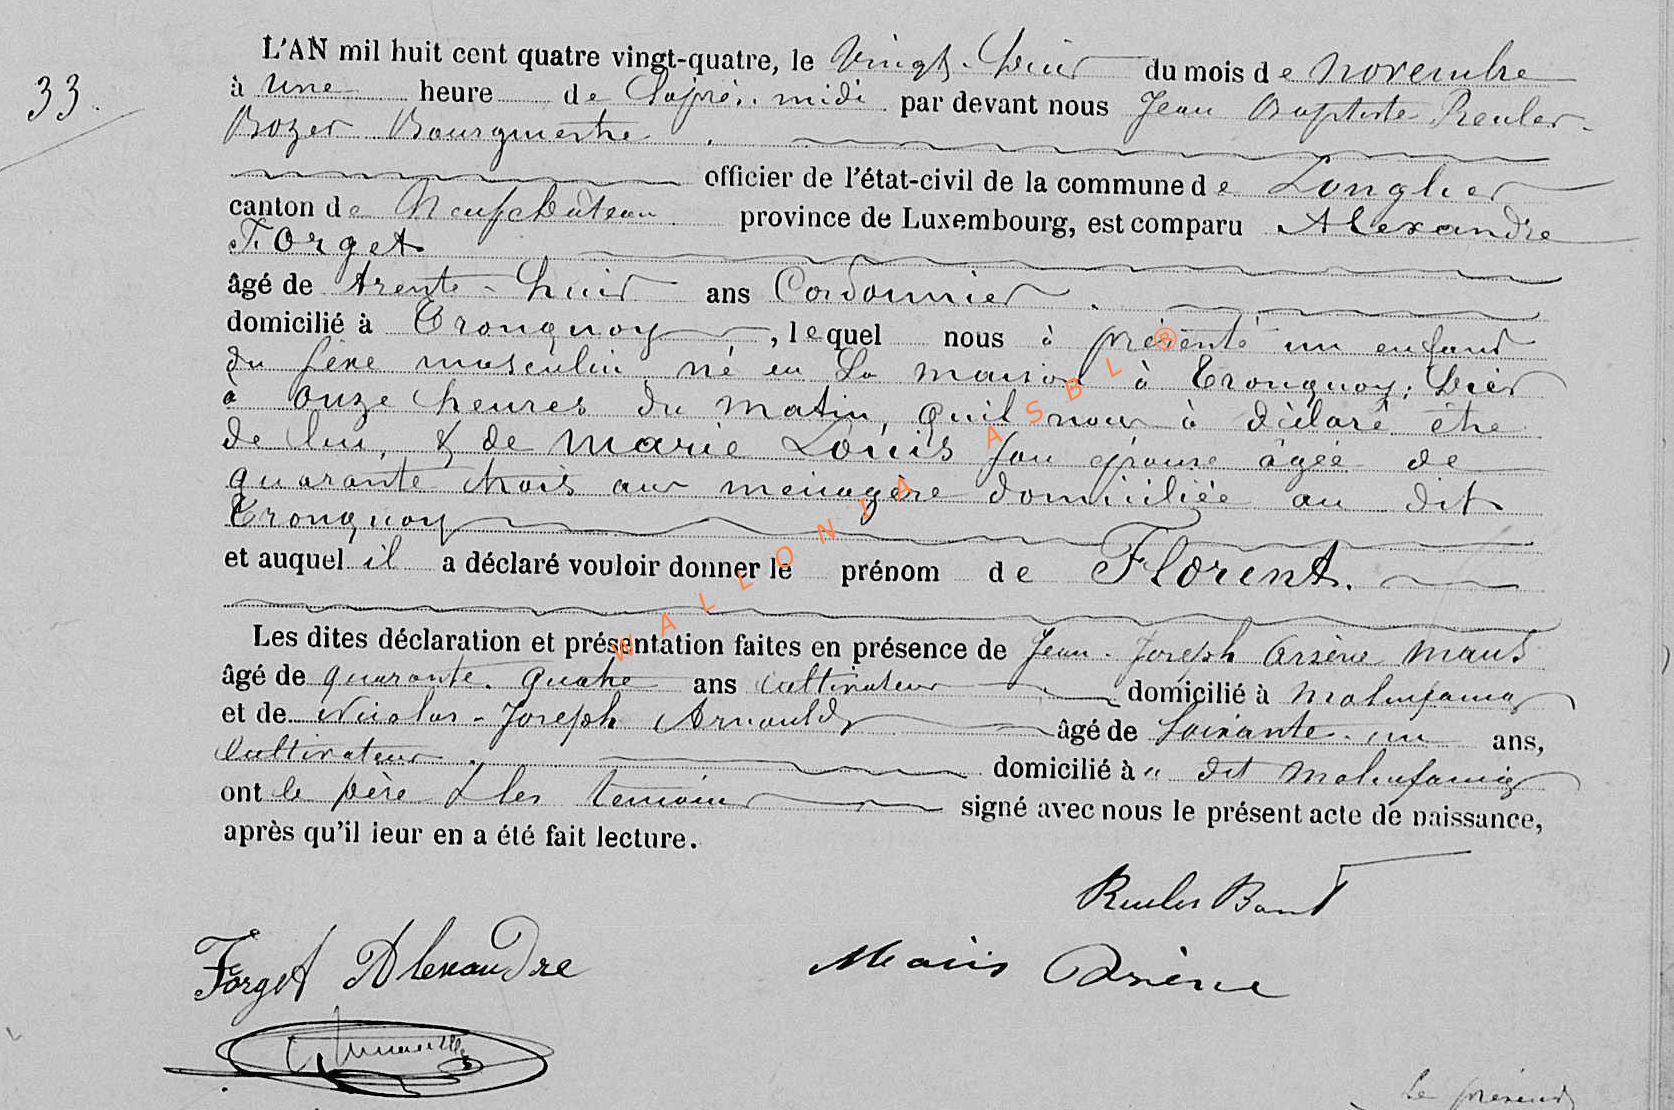 33.
L'AN mil huit cent quatre vingt-quatre, le Vingt-huit du mois de novembre
à une heure de l'après-midi par devant nous Jean Baptiste Reuler-
Bozet Bourgmestre
officier de l'état-civil de la commune de Longlier
canton de Neufchâteau province de Luxembourg, est comparu Alexandre
Forget
âgé de trente-huit ans Cordonnier
domicilié à Tronquoy, lequel nous à présenté un enfant
du sexe masculin né en sa maison à Tronquoy, hier
à onze heures du matin, qu'il nous à déclaré être
de lui, & de marie Louis son épouse âgée de
quarante trois ans menagère domiciliée au dit
Tronquoy
et auquel il a déclaré vouloir donner le prénom de Florent.
Les dites déclaration et présentation faites en présence de Jean-Joseph Arsène Maus
âgé de quarante-quatre ans cultivateur domicilié à Molinfaing
et de Nicolas-Joseph Arnould âgé de soixante-un ans,
Cultivateur domicilié à " dit Molinfaing
ont le père & les temoins signé avec nous le présent acte de naissance,
après qu'il leur en a été fait lecture.
Reuler
Forget Alexandre
Arsène
WALLONIA ASBL ®
Le